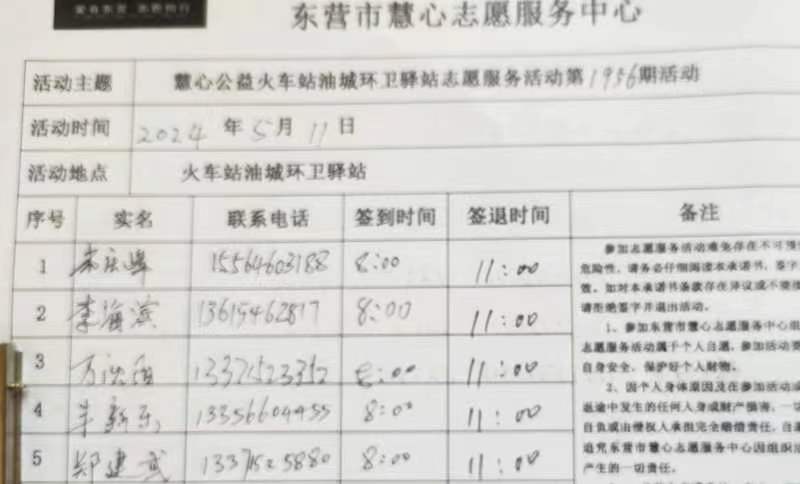 东营市慧心志愿服务中心
活动主题 慧心公益火车站油城环卫驿站志愿服务活动第1936期活动
活动时间 2024年5月11日
活动地点 火车站油城环卫驿站
序号 实名 联系电话 签到时间 签退时间 备注
1 15564603188 8:00 11:00
2 李海滨 13615462817 8:00 11:00
3 13371523352 8:00 11:00
4 13356604455 8:00 11:00
5 郑建武 8:00 11:00
参加志愿服务活动难免存在不可预
危险性,请务必仔细阅读本承诺书,签字
效。如对本承诺书条款存在异议或不要接
请拒绝签字并退出活动。
1、参加东营市慧心志愿服务中心组
志愿服务活动属于个人自愿,参加活动要
自身安全,保护好个人财物。
2、因个人身体原因及在参加活动或
返途中发生的任何人身或财产损害,一切
自负或由侵权人承担完全赔偿责任,自愿
追究东营市慧心志愿服务中心因组织活
产生的一切责任。